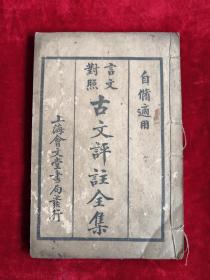 自修適用
言文
對照
古文評註全集
上海會文堂書局發行